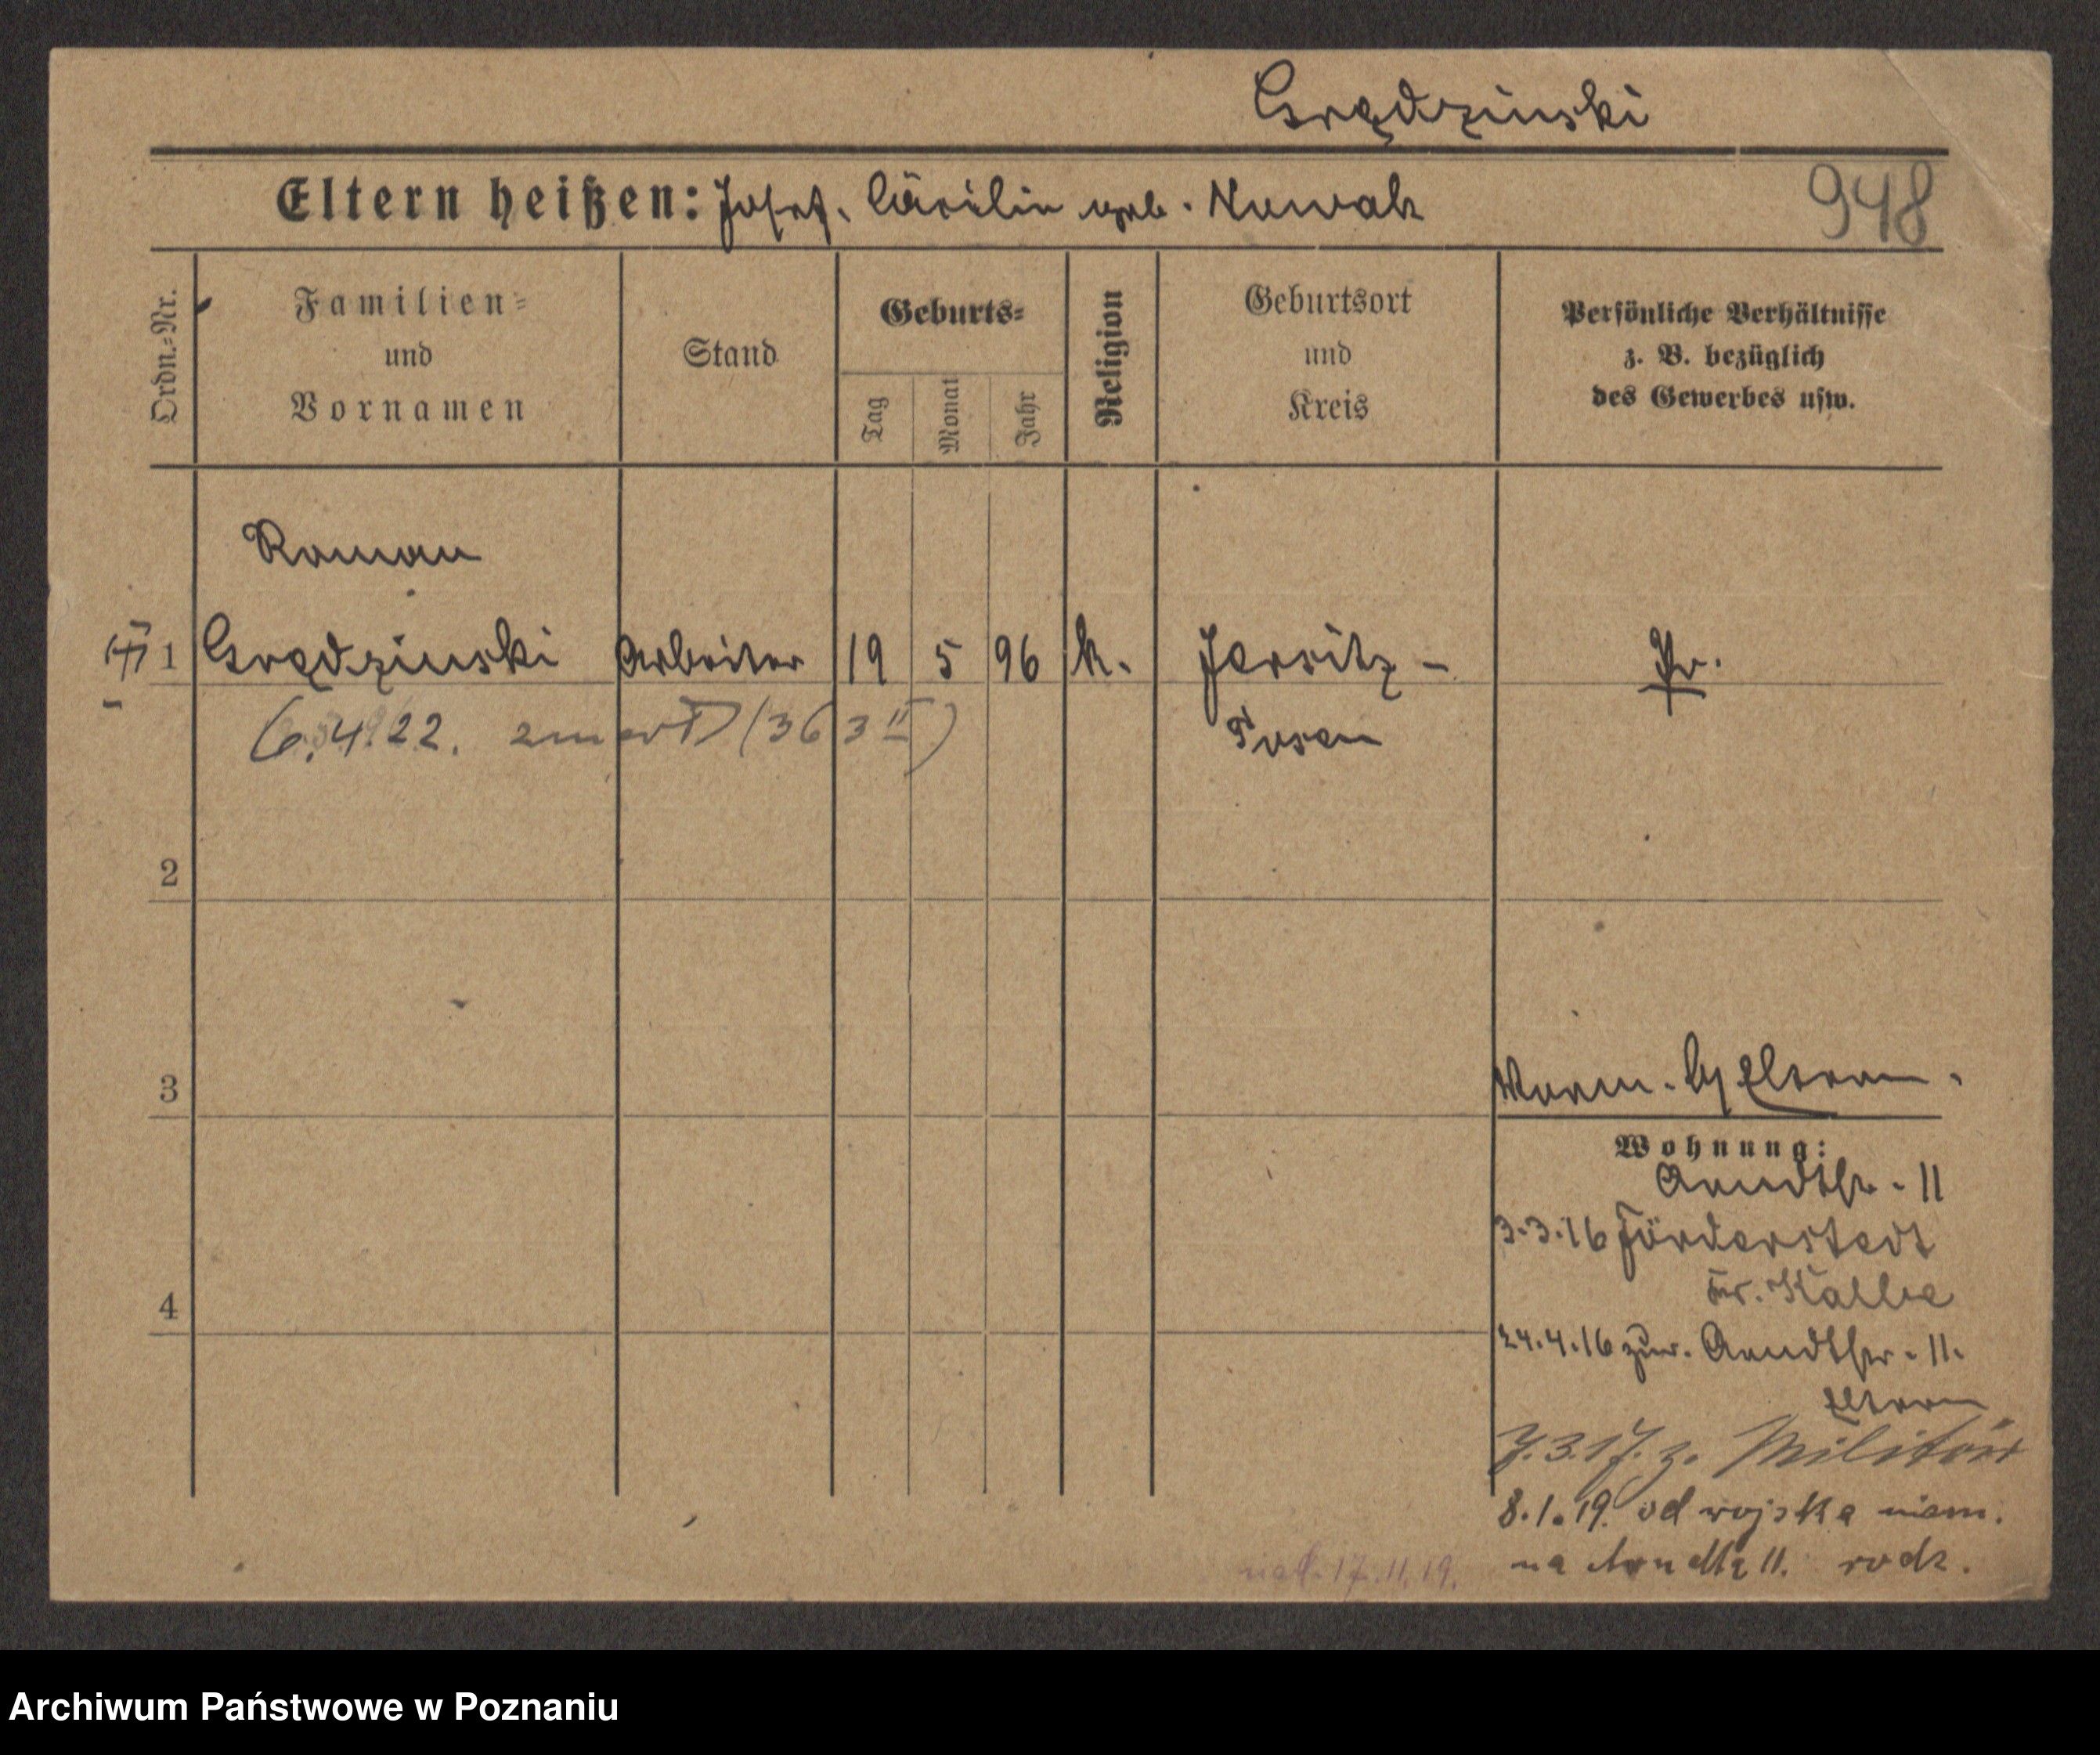 Grędzinski
Eltern heißen: Josef, Cäcilie geb. Nowak
948
Ordn.-Nr.
Familien-
und
Vornamen
Stand
Geburts-
Tag
Monat
Jahr
Religion
Geburtsort
und
Kreis
Persönliche Verhältnisse
z. B. bezüglich
des Gewerbes usw.
Roman
1 Grędzinski Arbeiter 19 5 96 k. Jersitz - Pr.
Posen
6.4.22. zmarł (363 II)
2
3
Eltern.
Wohnung:
Arndtstr. 11
3.3.16 Förderstedt
Kr. Kalbe
24.4.16 zur. Arndtstr. 11.
Eltern
7.3.17. z. Militär
8.1.19. od wojska niem.
na Arndta 11. rodz.
4
17.11.19.
Archiwum Państwowe w Poznaniu